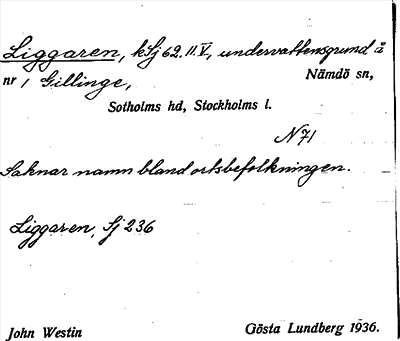 Liggaren, kSj 62. II. V, undervattensgrund å
nr 1 Gillinge, Nämdö sn,
Sotholms hd, Stockholms l.
N 71
Saknar namn bland ortsbefolkningen.
Liggaren, Sj 236
John Westin Gösta Lundberg 1936.